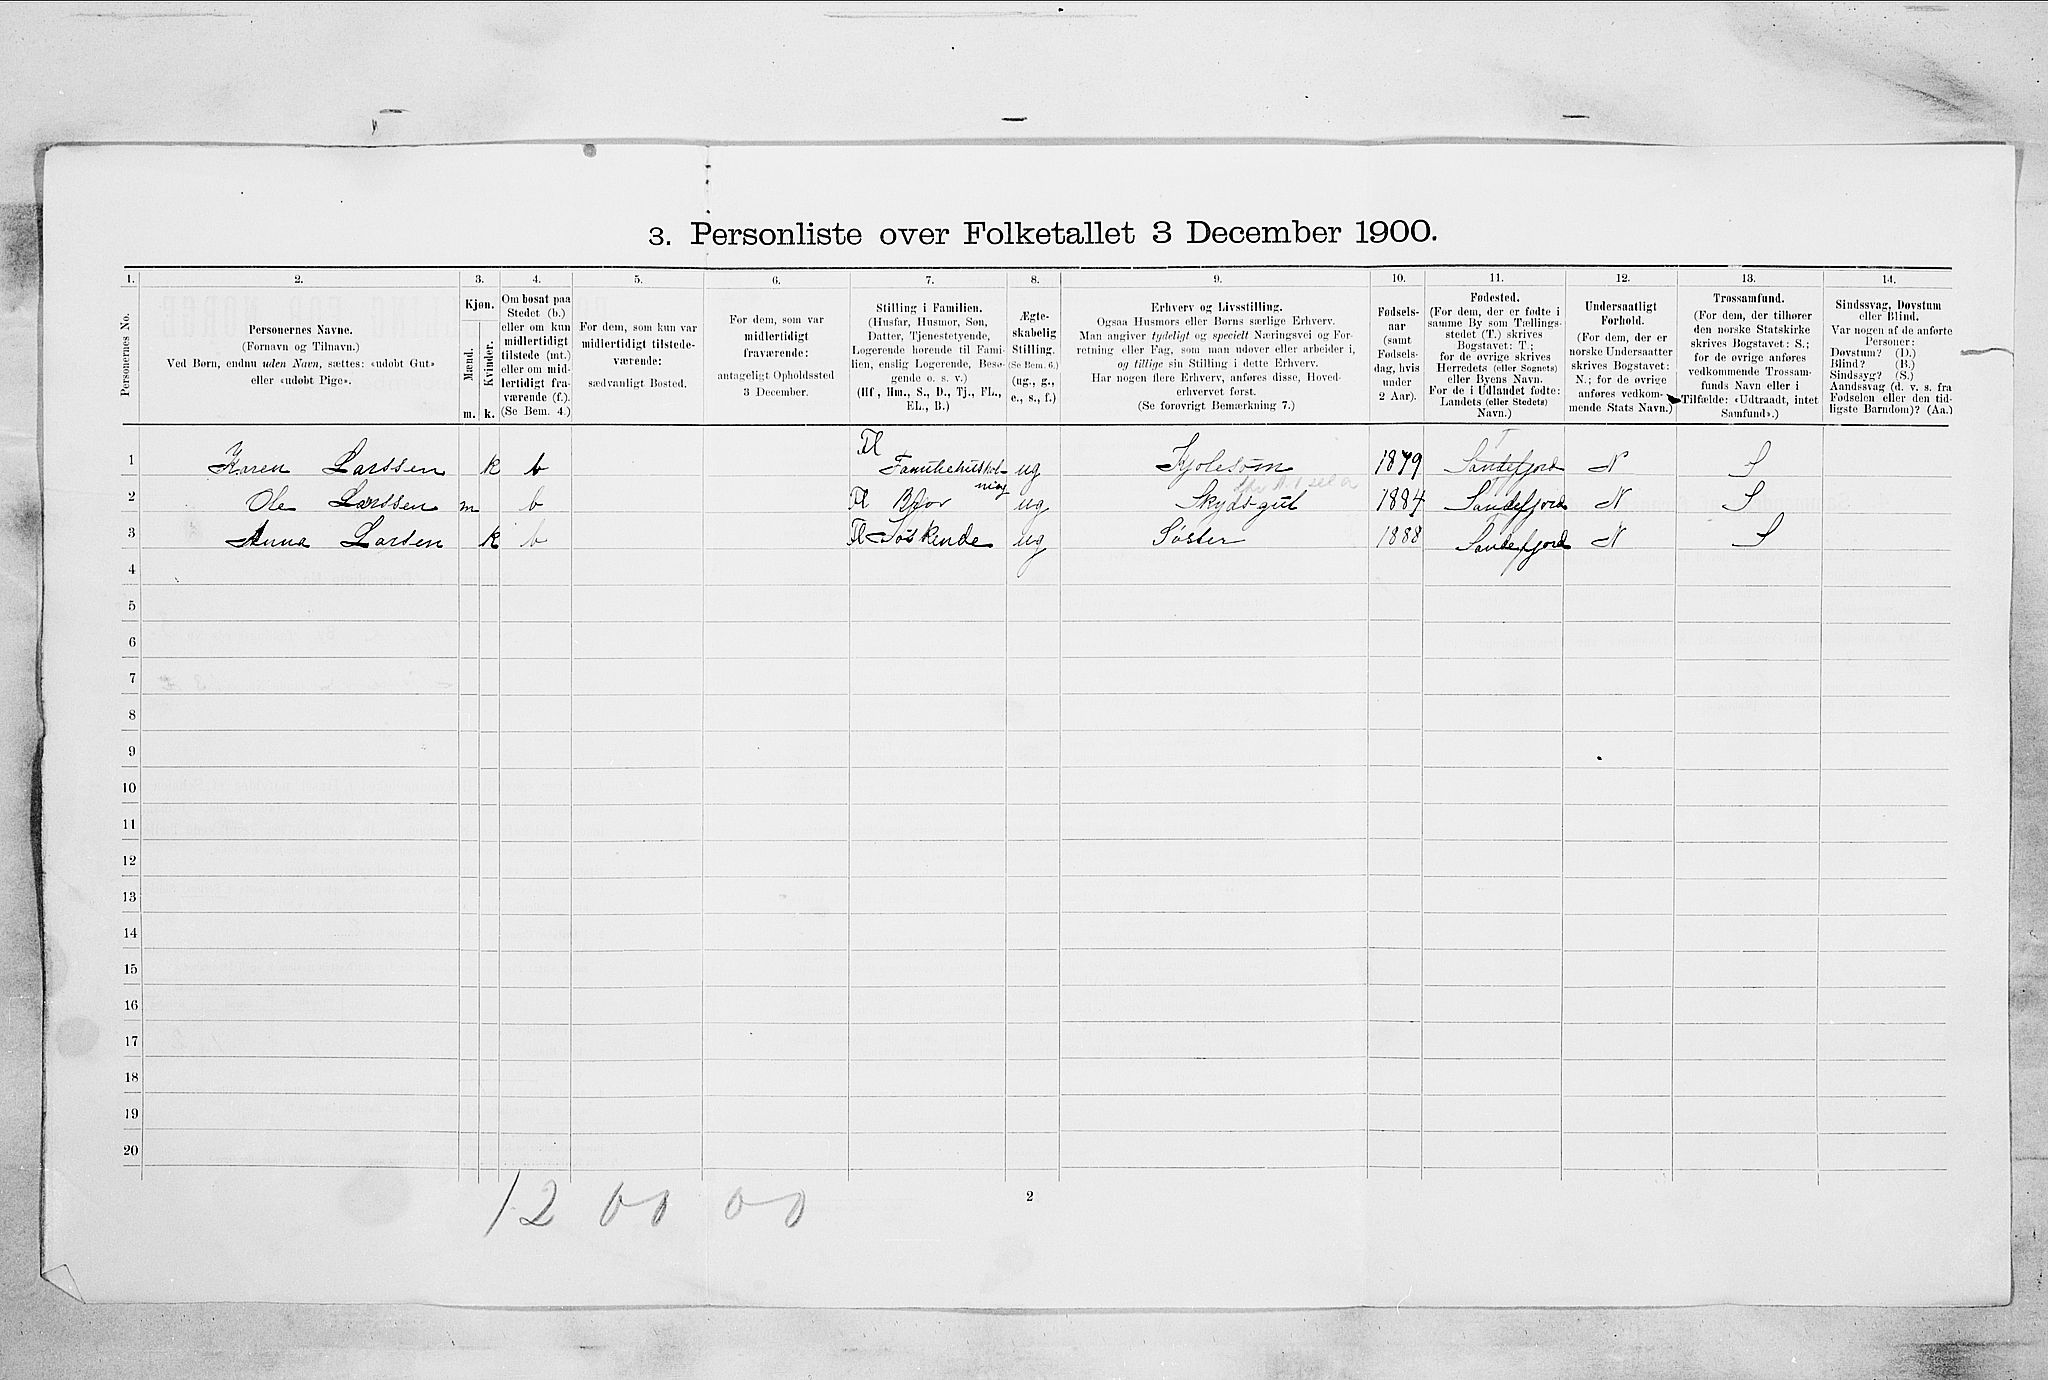 3. Personliste over Folketallet 3 December 1900.
1. 2. 3. 4. 5. 6. 7. 8. 9. 10. 11. 12. 13. 14.
Personernes No.
Personernes Navne.
(Fornavn og Tilnavn.)
Ved Børn, endnu uden Navn, sættes: «udøbt Gut»
eller «udøbt Pige».
Kjøn.
Mænd.
Kvinder.
m. k.
Om bosat paa
Stedet (b.)
eller om kun
midlertidigt
tilstede (mt.)
eller om mid-
lertidigt fra-
værende (f.).
(Se Bem. 4.)
For dem, som kun var
midlertidigt tilstede-
værende:
sædvanligt Bosted.
For dem, som var
midlertidigt
fraværende:
antageligt Opholdssted
3 December.
Stilling i Familien.
(Husfar, Husmor, Søn,
Datter, Tjenestetyende,
Logerende hørende til Fami-
lien, enslig Logerende, Besø-
gende o. s. v.)
(Hf, Hm., S., D., Tj., FL.,
EL., B.)
Ægte-
skabelig
Stilling.
(Se Bem. 6.)
(ug., g.,
e., s., f.)
Erhverv og Livsstilling.
Ogsaa Husmors eller Børns særlige Erhverv.
Man angiver tydeligt og specielt Næringsvei og For-
retning eller Fag, som man udøver eller arbeider i,
og tillige sin Stilling i dette Erhverv.
Har nogen flere Erhverv, anføres disse, Hoved-
erhvervet først.
(Se forøvrigt Bemærkning 7.)
Fødsels-
aar
(samt
Fødsels-
dag, hvis
under
2 Aar).
Fødested.
(For dem, der er fødte i
samme By som Tællings-
stedet (T.) skrives
Bogstavet: T;
for de øvrige skrives
Herredets (eller Sognets)
eller Byens Navn.
For de i Udlandet fødte:
Landets (eller Stedets)
Navn.)
Undersaatligt
Forhold.
(For dem, der er
norske Undersaatter
skrives Bogstavet:
N.; for de øvrige
anføres vedkom-
mende Stats Navn.)
Trossamfund.
(For dem, der tilhører
den norske Statskirke
skrives Bogstavet: S.;
for de øvrige anføres
vedkommende Trossam-
funds Navn eller i
Tilfælde: «Udtraadt, intet
Samfund».)
Sindssvag, Døvstum
eller Blind.
Var nogen af de anførte
Personer:
Døvstum? (D.)
Blind? (B.)
Sindssyg? (S.)
Aandssvag (d. v. s. fra
Fødselen eller den tid-
ligste Barndom)? (Aa.)
Fl T
1 Karen Larssen k b Familiehushol- ug Kjolesøm 1879 Sandefjord N S
ning
2 Ole Larssen m b Fl Bror ug Skydsgut 1884 Sandefjord N S
3 Anna Larsen k b Fl Søskende ug Søster 1888 Sandefjord N S
4
5
6
7
8
9
10
11
12
13
14
15
16
17
18
19
20
12 00 00
2